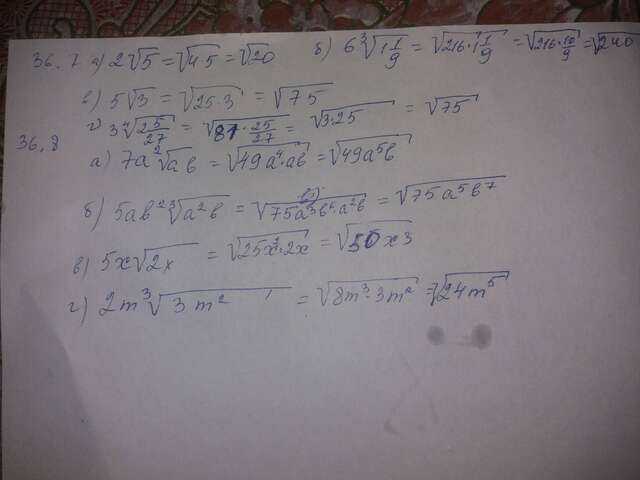 36.7 а) 2√5 = √4·5 = √20 б) 6∛1 1/9 = √216·1 1/9 = √216·10/9 = √240
в) 5√3 = √25·3 = √75
г) 3∜25/27 = √81·25/27 = √3·25 = √75
36,8
а) 7a²√ab = √49a⁴·ab = √49a⁵b
б) 5ab²∛a²b = √75a³b⁶·a²b = √75a⁵b⁷
в) 5x√2x = √25x²·2x = √50x3
г) 2m∛3m² = √8m³·3m² = √24m⁵